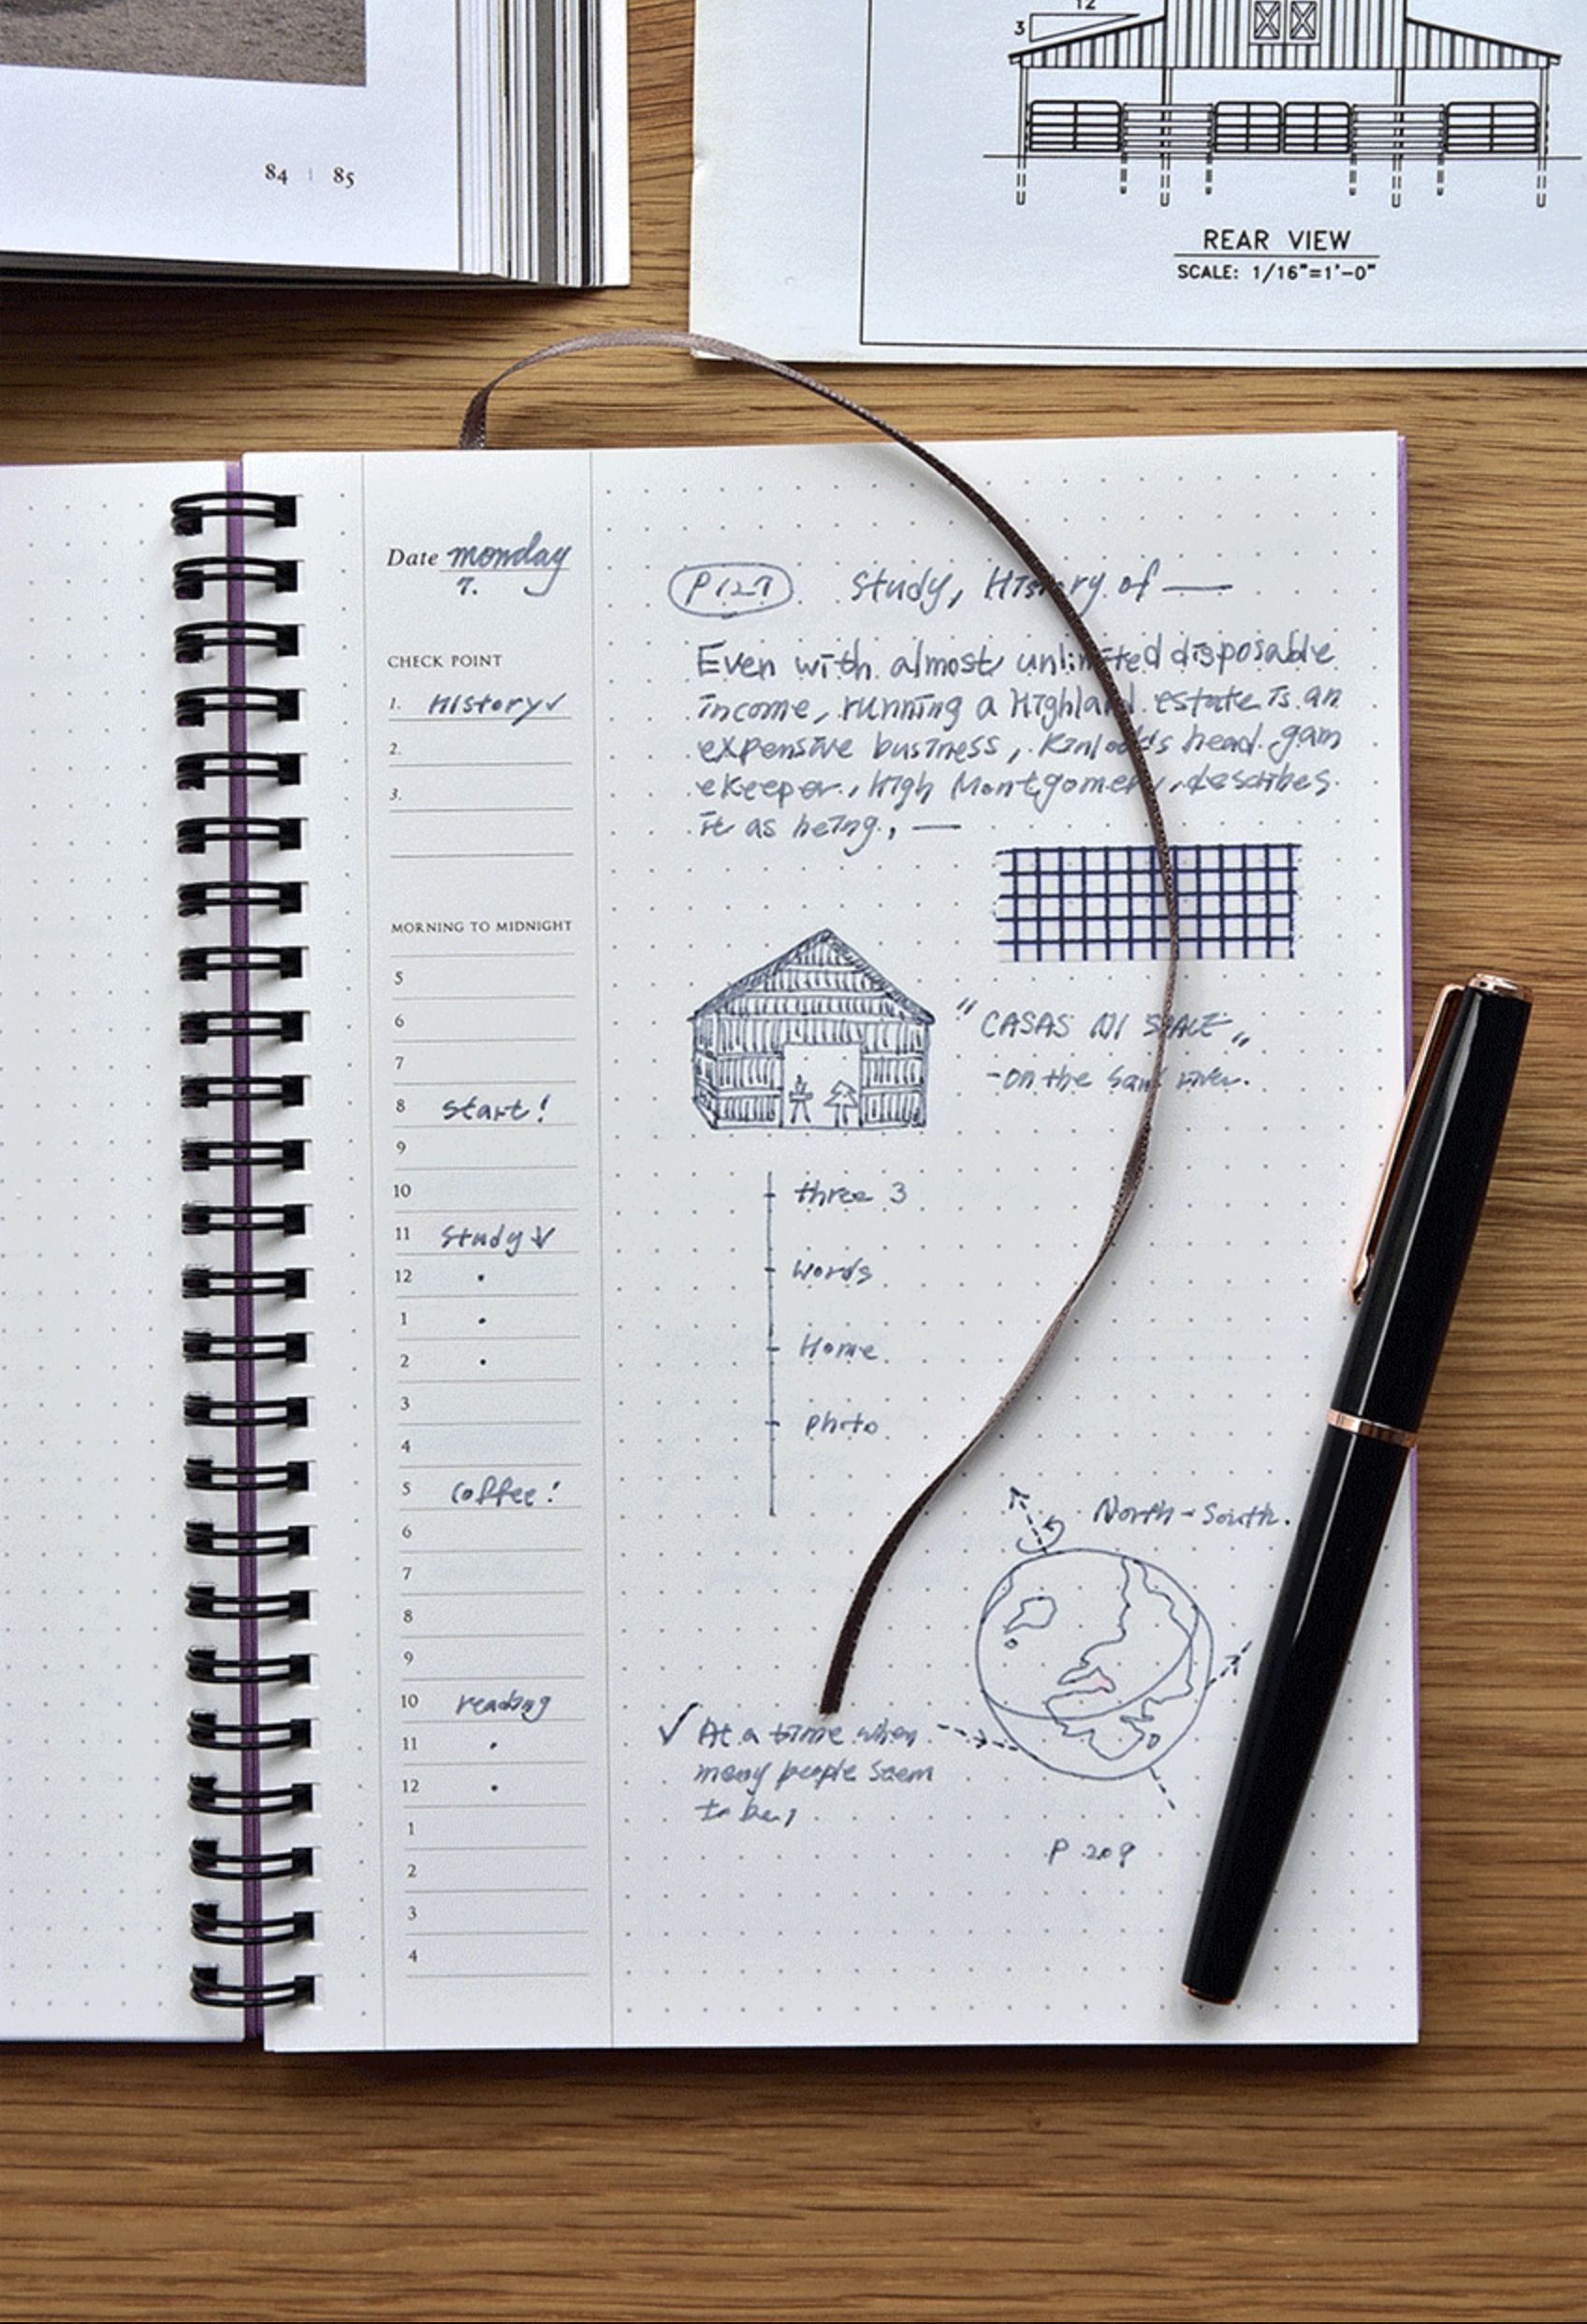 84 | 85
12
3
REAR VIEW
SCALE: 1/16"=1'-0"
Date monday
7.
CHECK POINT
1. History✓
2.
3.
MORNING TO MIDNIGHT
5
6
7
8 start!
9
10
11 study ✓
12 •
1 •
2 •
3
4
5 coffee!
6
7
8
9
10 reading
11 •
12 •
1
2
3
4
P127 study, History of —
Even with almost unlimited disposable
income, running a Highland estate is an
expensive business, head gam
ekeeper, High Montgomery, describes
it as being, —
"CASAS
-on the river.
three 3
words
Home
photo
North - South.
✓ At a time when
many people seem
to be,
P 209